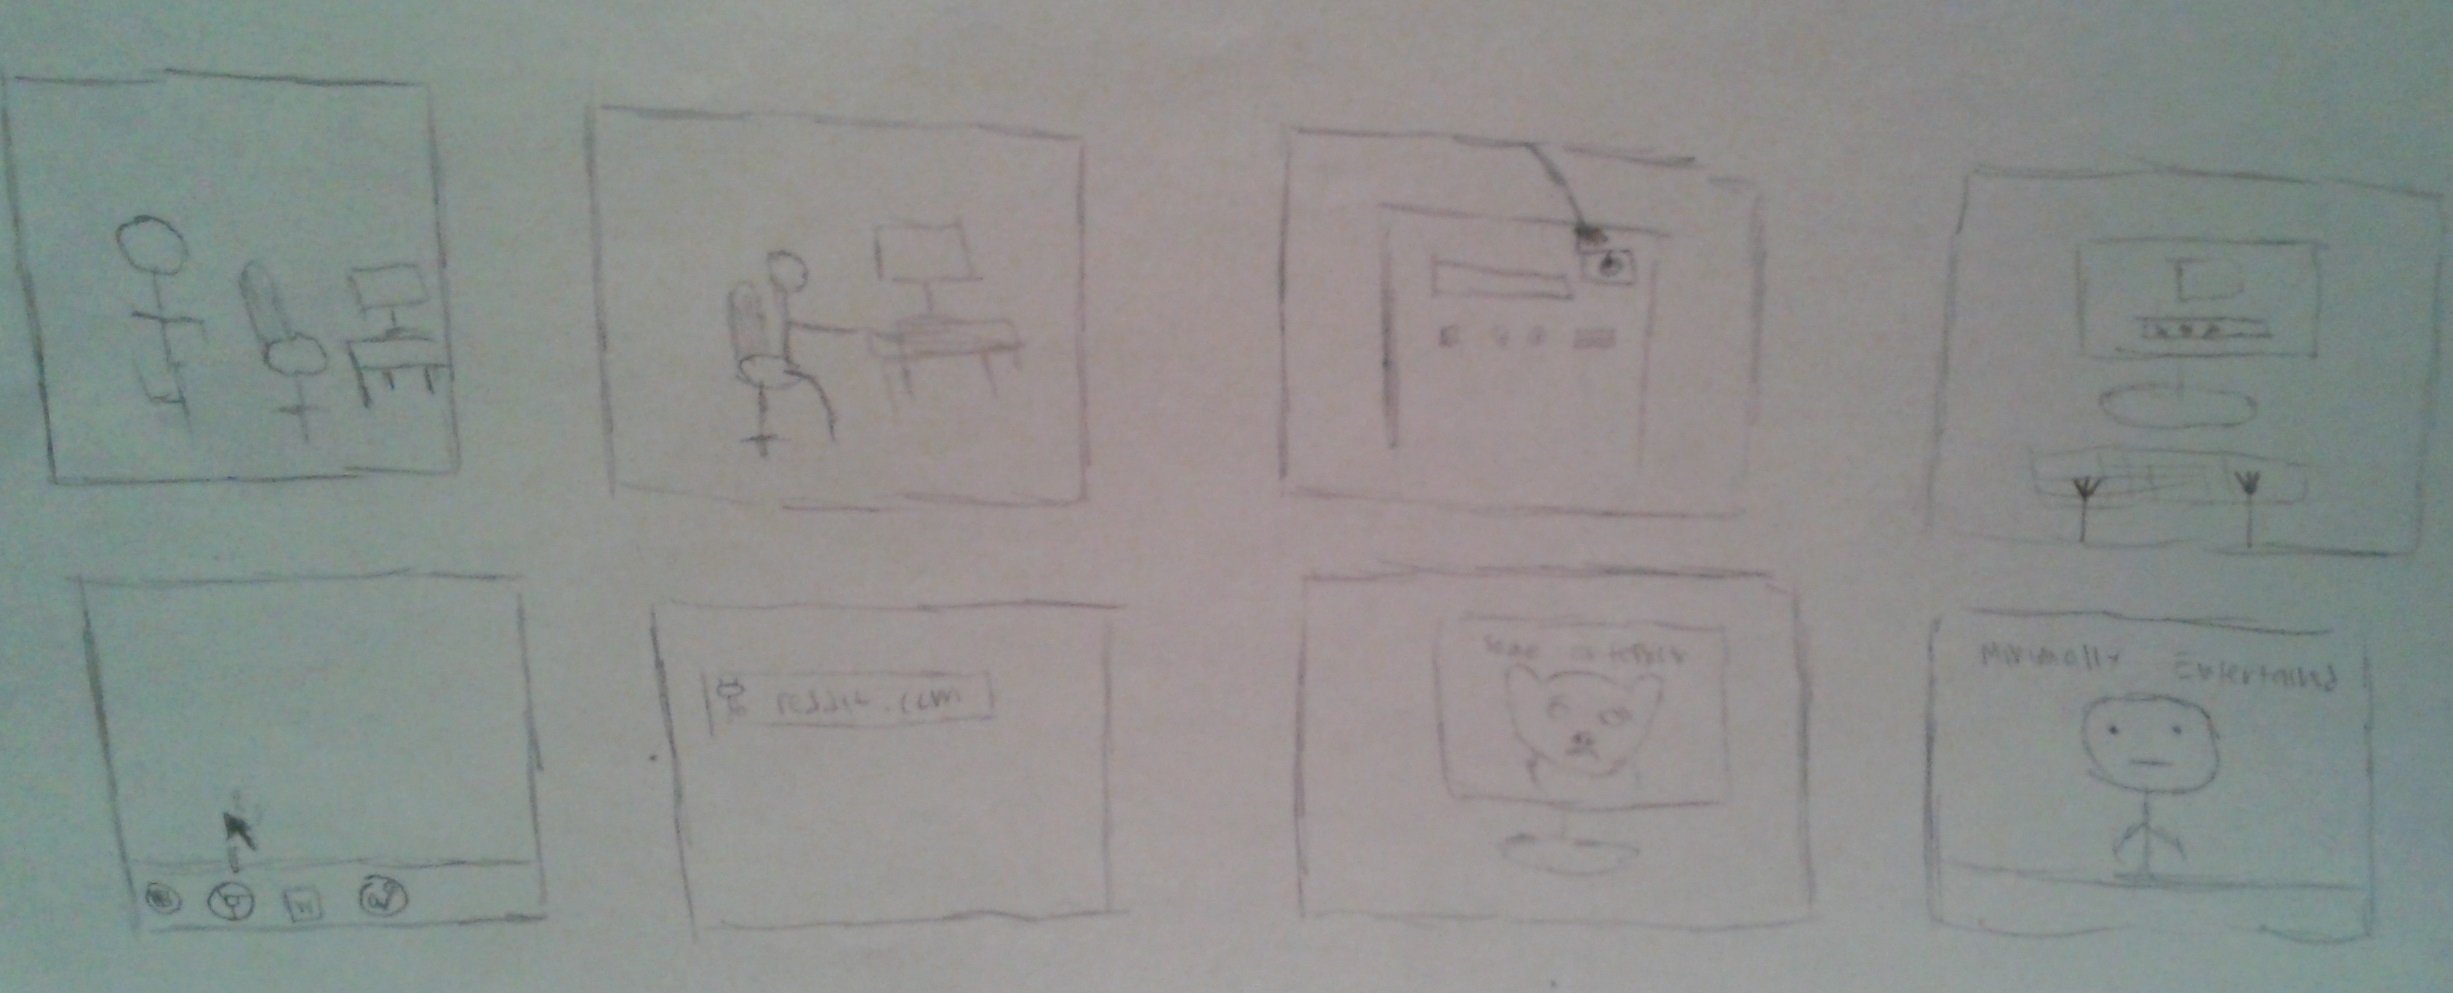 reddit.com
Some
Minimally Entertained